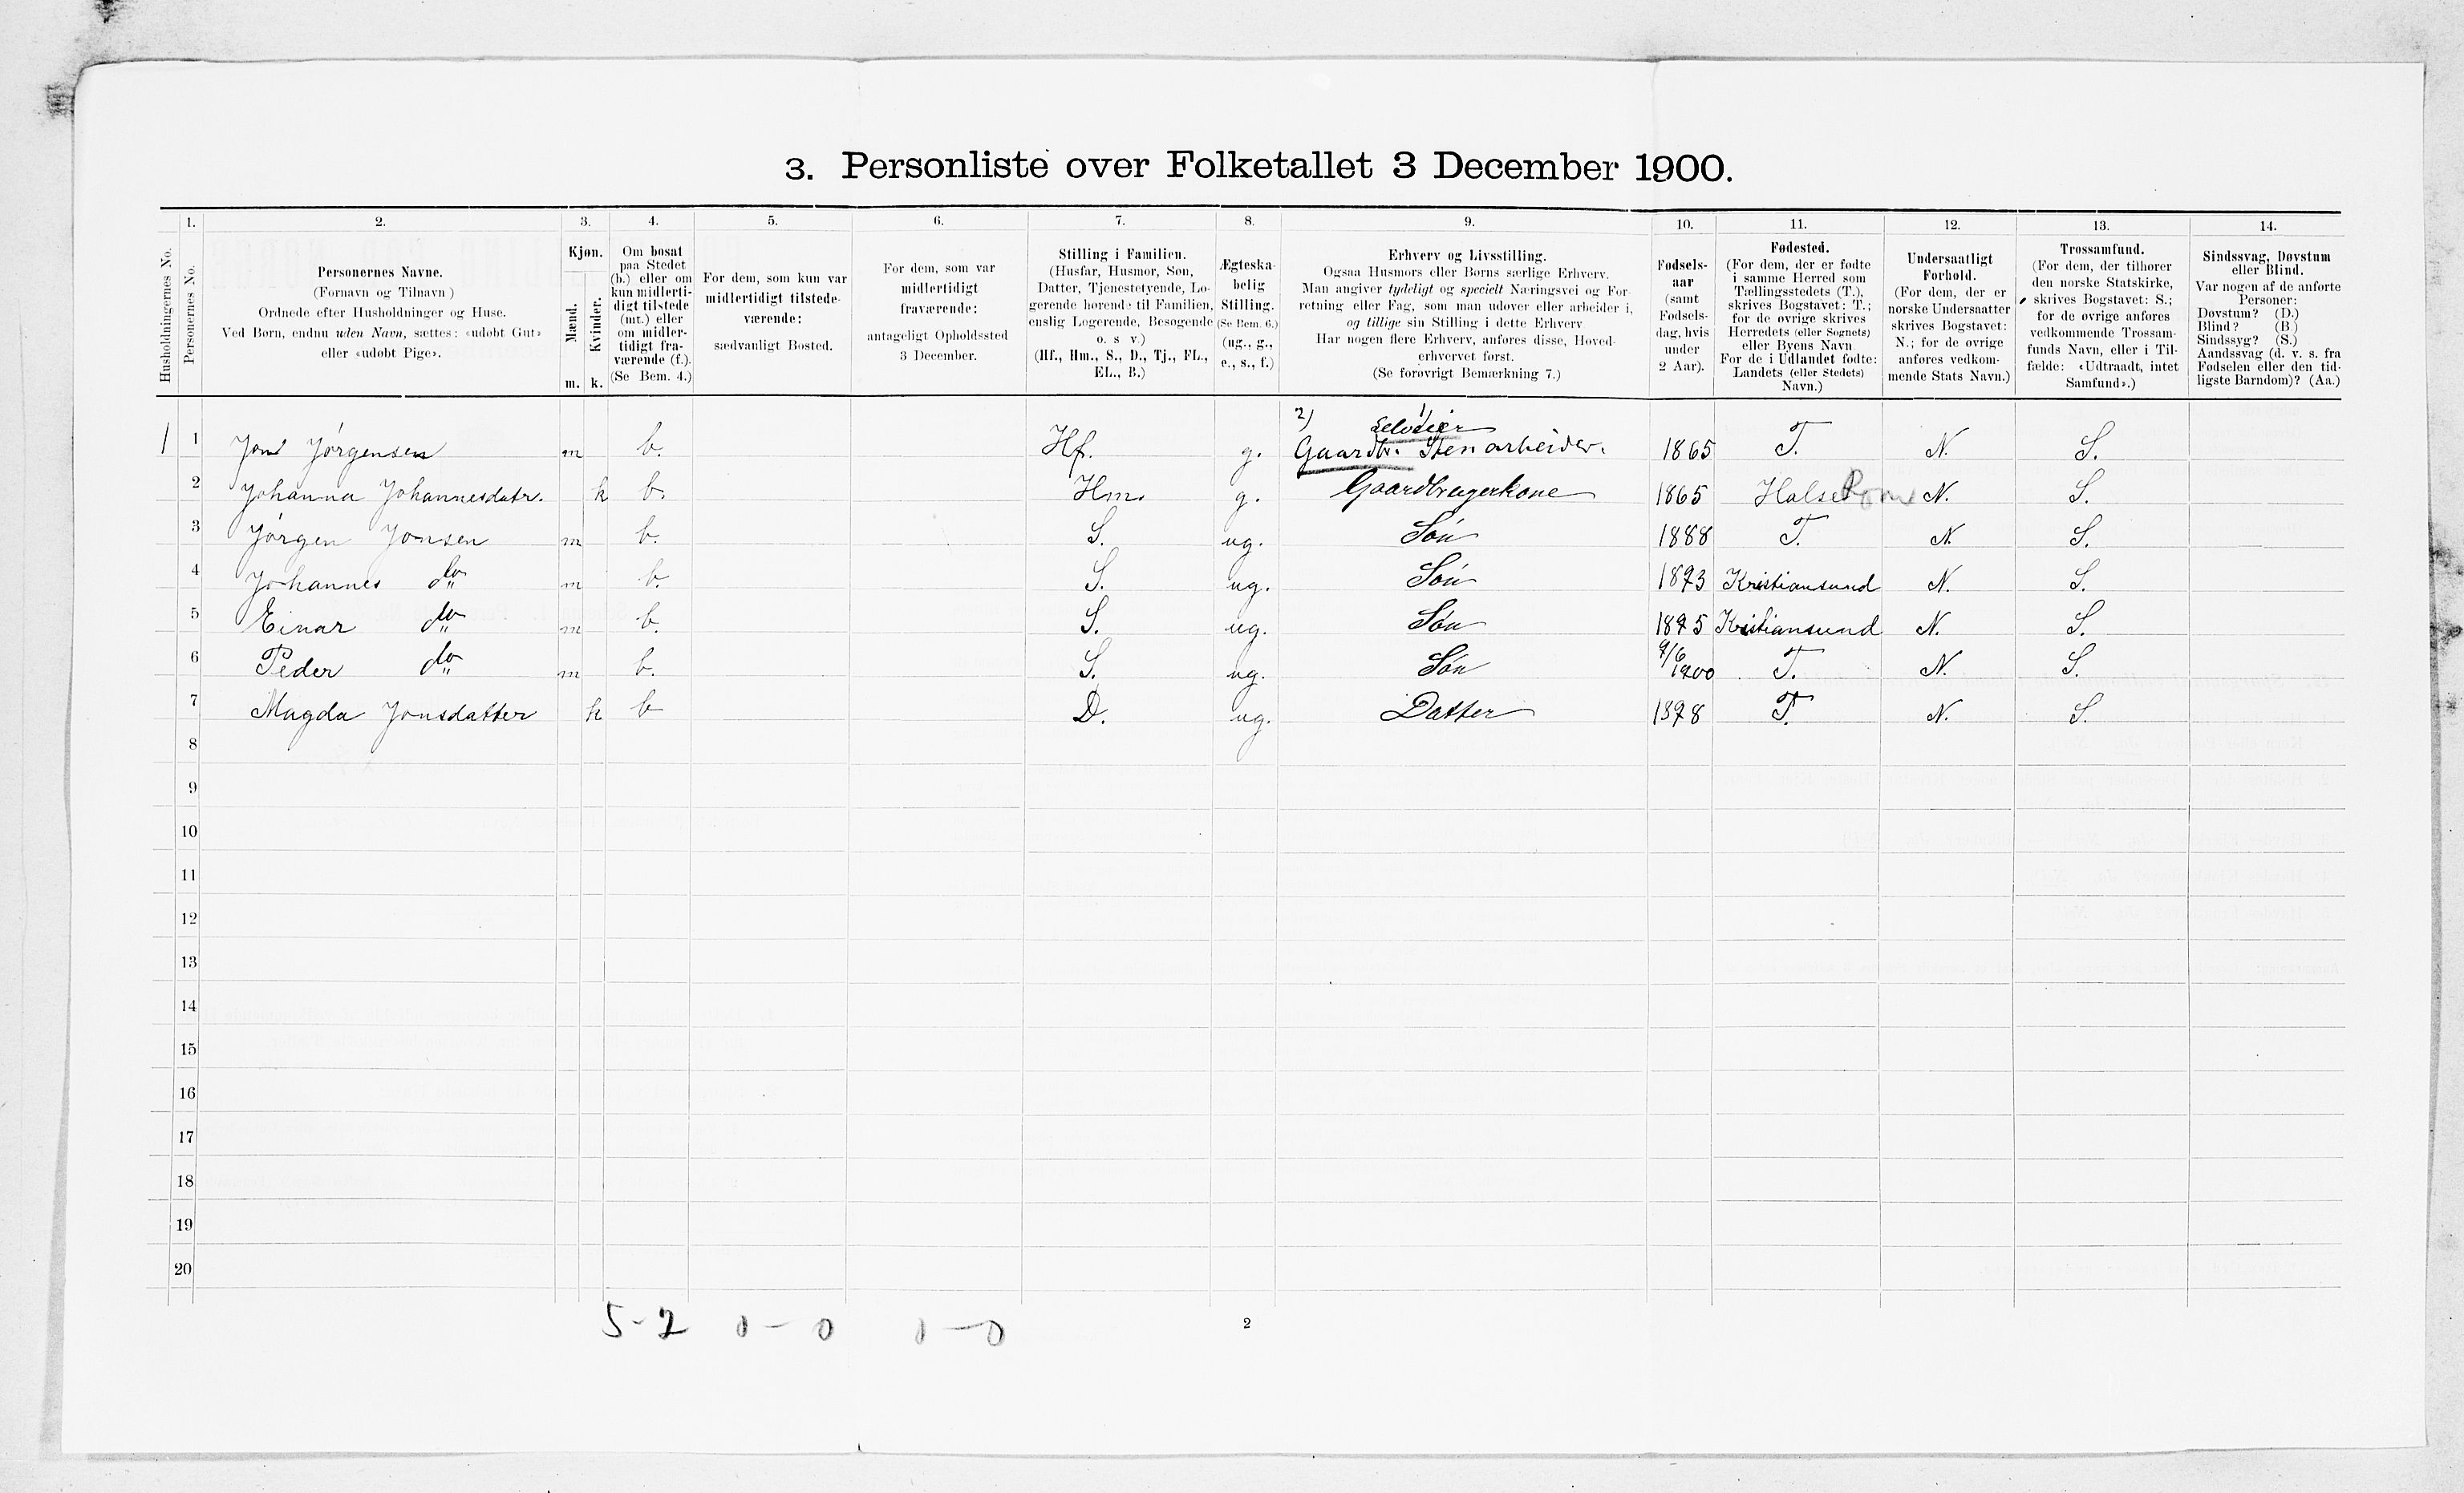 3. Personliste over Folketallet 3 December 1900.
Husholdningernes No.
1. Personernes No.
2. Personernes Navne.
(Fornavn og Tilnavn)
Ordnede efter Husholdninger og Huse.
Ved Børn, endnu uden Navn, sættes: «udøbt Gut»
eller «udøbt Pige».
3. Kjøn.
Mænd. m.
Kvinder. k.
4. Om bosat
paa Stedet
(b.) eller om
kun midlerti-
digt tilstede
(mt.) eller
om midler-
tidigt fra-
værende (f.).
(Se Bem. 4.)
5. For dem, som kun var
midlertidigt tilstede-
værende:
sædvanligt Bosted.
6. For dem, som var
midlertidigt
fraværende:
antageligt Opholdssted
3 December.
7. Stilling i Familien.
(Husfar, Husmor, Søn,
Datter, Tjenestetyende, Lo-
gerende hørende til Familien,
enslig Logerende, Besøgende
o. s v.)
(Hf., Hm., S., D., Tj., FL.,
EL., B.)
8. Ægteska-
belig
Stilling.
(Se Bem. 6.)
(ug., g.,
e., s., f.)
9. Erhverv og Livsstilling.
Ogsaa Husmors eller Børns særlige Erhverv.
Man angiver tydeligt og specielt Næringsvei og For-
retning eller Fag, som man udøver eller arbeider i,
og tillige sin Stilling i dette Erhverv
Har nogen flere Erhverv, anføres disse, Hoved-
erhvervet først.
(Se forøvrigt Bemærkning 7.)
10. Fødsels-
aar
(samt
Fødsels-
dag, hvis
under
2 Aar).
11. Fødested.
(For dem, der er fødte
i samme Herred som
Tællingsstedets (T.),
skrives Bogstavet: T.;
for de øvrige skrives
Herredets (eller Sognets)
eller Byens Navn
For de i Udlandet fødte:
Landets (eller Stedets)
Navn.)
12. Undersaatligt
Forhold.
(For dem, der er
norske Undersaatter
skrives Bogstavet:
N.; for de øvrige
anføres vedkom-
mende Stats Navn.)
13. Trossamfund.
(For dem, der tilhører
den norske Statskirke,
skrives Bogstavet: S.;
for de øvrige anføres
vedkommende Trossam-
funds Navn, eller i Til-
fælde: «Udtraadt, intet
Samfund».)
14. Sindssvag, Døvstum
eller Blind.
Var nogen af de anførte
Personer:
Døvstum? (D.)
Blind? (B.)
Sindssyg? (S.)
Aandssvag (d. v. s. fra
Fødselen eller den tid-
ligste Barndom)? (Aa.)
2) 1)
Selveier
1 1 Jon Jørgensen m b. Hf. g. Gaardbr. Stenarbeider. 1865 T. N. S.
2 Johanna Johannesdatr. k b. Hm. g. Gaardbrugerkone 1865 Halse N. S.
3 Jørgen Jonsen m b. S. ug. Søn 1888 T. N. S.
4 Johannes do m b. S. ug. Søn 1893 Kristiansund N. S.
5 Einar do m b. S. ug. Søn 1895 Kristiansund N. S.
6 Peder do m b. S. ug. Søn 9/6 1900 T. N. S.
7 Magda Jonsdatter k b D. ug. Datter 1898 T. N. S.
8
9
10
11
12
13
14
15
16
17
18
19
20
5-2 0-0 0-0
2